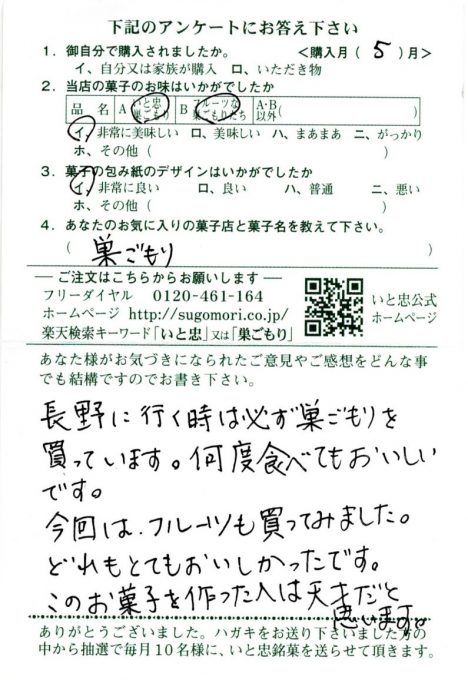 下記のアンケートにお答え下さい
1．御自分で購入されましたか。 ＜購入月（ 5 ）月＞
イ、自分又は家族が購入 ロ、いただき物
2．当店の菓子のお味はいかがでしたか
品 名 A いと忠巣ごもり B フルーツな巣ごもりたち A・B以外（ ）
イ、非常に美味しい ロ、美味しい ハ、まあまあ ニ、がっかり
ホ、その他（ ）
3．菓子の包み紙のデザインはいかがでしたか
イ、非常に良い ロ、良い ハ、普通 ニ、悪い
ホ、その他（ ）
4．あなたのお気に入りの菓子店と菓子名を教えて下さい。
（ 巣ごもり ）
― ご注文はこちらからお願いします ―
フリーダイヤル 0120-461-164
ホームページ http://sugomori.co.jp/
楽天検索キーワード「いと忠」又は「巣ごもり」
いと忠公式
ホームページ
あなた様がお気づきになられたご意見やご感想をどんな事
でも結構ですのでお書き下さい。
長野に行く時は必ず巣ごもりを
買っています。何度食べてもおいしい
です。
今回は、フルーツも買ってみました。
どれもとてもおいしかったです。
このお菓子を作った人は天才だと
思います。
ありがとうございました。ハガキをお送り下さいました方の
中から抽選で毎月10名様に、いと忠銘菓を送らせて頂きます。